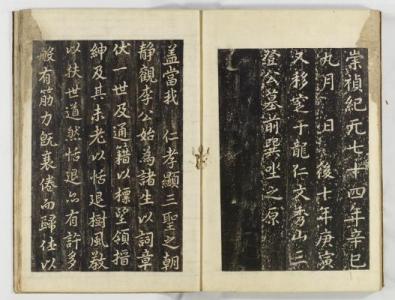 崇禎紀元七十四年辛巳
九月 日 後十年庚寅
又移窆于龍仁文秀山三
登公墓前巽坐之原
盖當我 仁孝顯三聖之朝
静觀李公始為諸生以詞章
伏一世及通籍以標望領搢
紳及其未老以恬退樹風教
以扶世道然恬退亦有許多
般有筋力既衰倦而歸休以